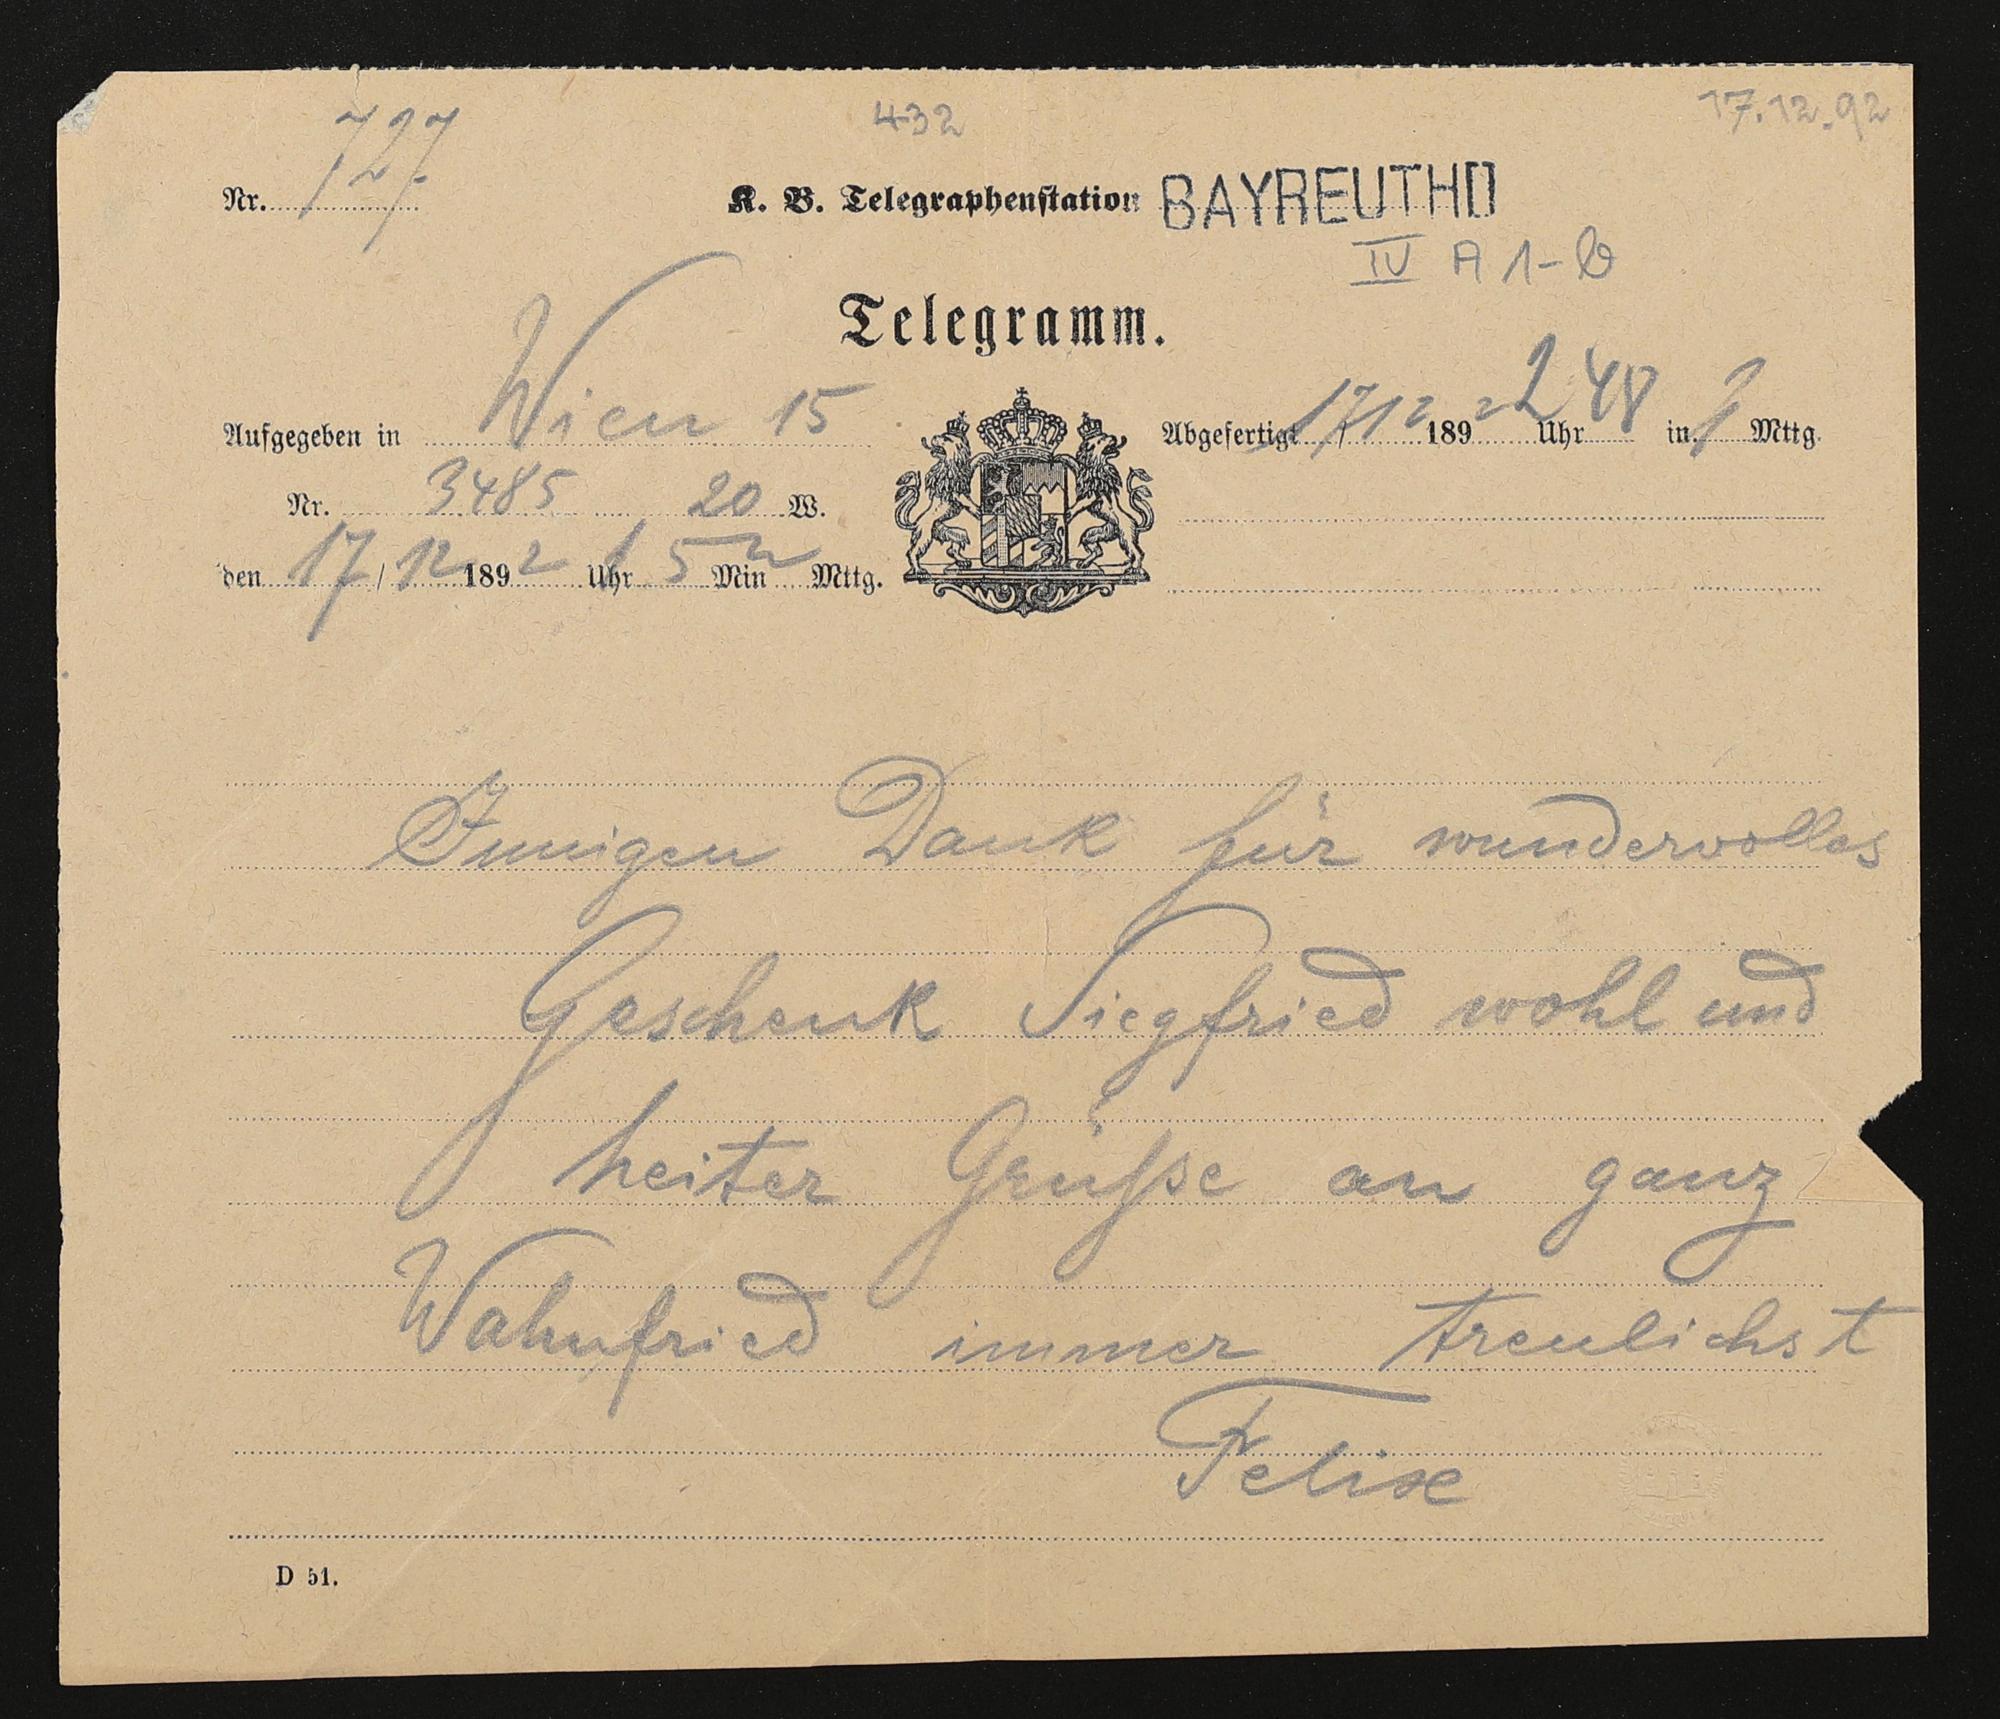 432
17.12.92
Nr. 727
K. B. Telegraphenstation BAYREUTH
IV A 1-b
Telegramm.
Aufgegeben in Wien 15
Abgefertigt 17/12 1892 2 Uhr 48 in Mttg.
Nr. 3485 20 W.
den 17/12 1892 Uhr 5 Min Mttg.
Innigen Dank für wundervolles
Geschenk Siegfried wohl und
heiter Grüsse an ganz
Wahnfried immer treulichst
Felix
D 51.